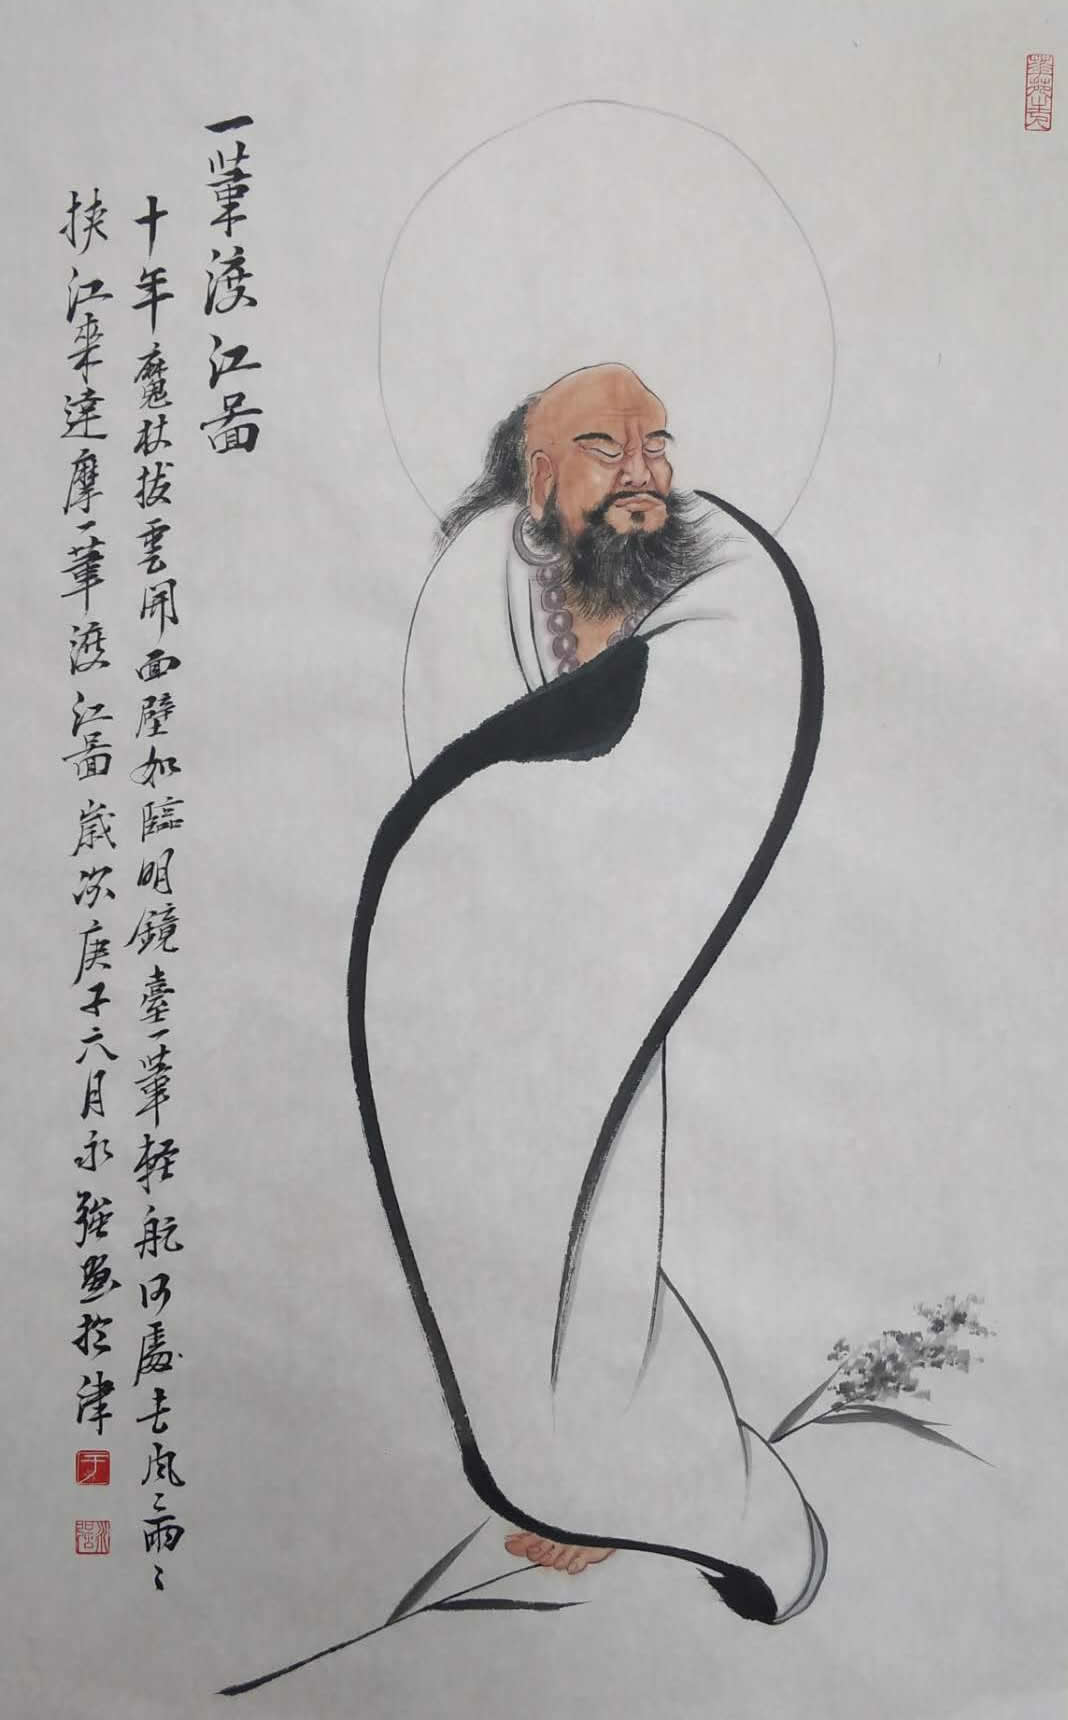 一葦渡江圖
十年魔杖拔雲開面壁如臨明鏡臺一葦輕航何處去風〻雨〻
挾江來達摩一葦渡江圖歲次庚子六月永强畫於津
于